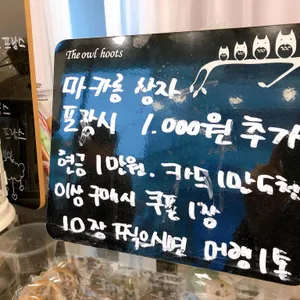 The owl hoots
마카롱 상자
포장시 1.000원 추가
현금 1만원. 카드 1만5천
이상 구매시 쿠폰 1장
10장 찍으시면 머랭 1통